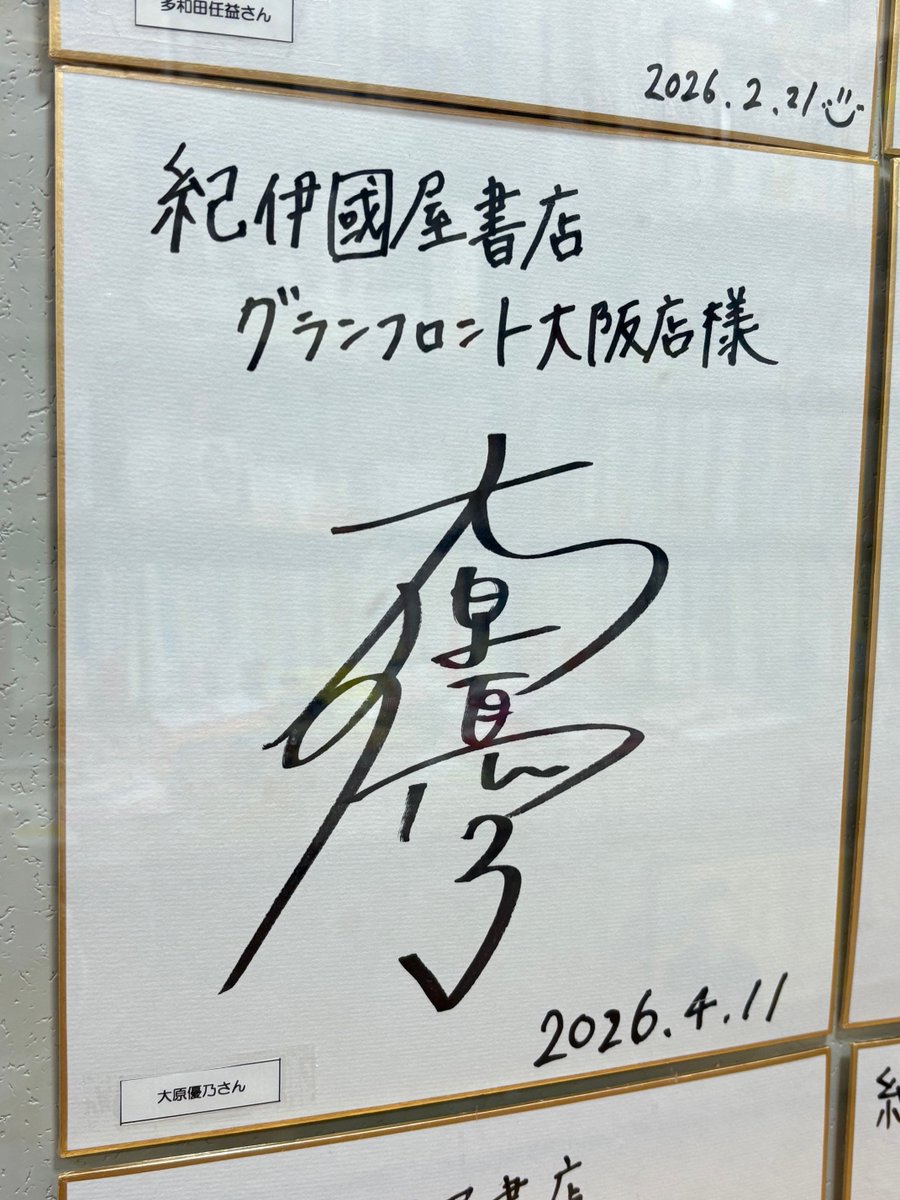 多和田任益さん
2026.2.21
紀伊國屋書店
グランフロント大阪店様
大原優乃
2026.4.11
大原優乃さん